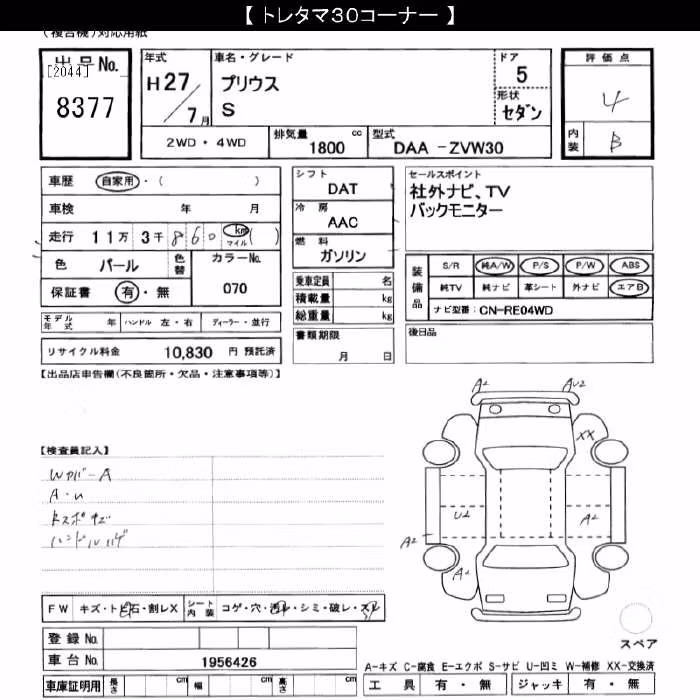 【 トレタマ30コーナー 】
(複合機)対応用紙
出品No.
[2044]
8377
年式
H27/7月
車名・グレード
プリウス
S
ドア
5
形状
セダン
評価点
4
内装
B
2WD・4WD
排気量 cc
1800
型式
DAA -ZVW30
車歴 自家用・( )
車検 年 月
走行 11万 3千 860 km マイル ( )
色 パール 色替
カラーNo.
070
保証書 有・無
シフト
DAT
冷房
AAC
燃料
ガソリン
乗車定員 名
積載量 kg
総重量 kg
セールスポイント
社外ナビ、TV
バックモニター
装備品
S/R 純A/W P/S P/W ABS
純TV 純ナビ 革シート 外ナビ エアB
ナビ型番: CN-RE04WD
モデル年式 年 ハンドル 左・右 ディーラー・並行
書類期限
月 日
後日品
リサイクル料金 10,830 円 預託済
【出品店申告欄(不良箇所・欠品・注意事項等)】
A2 AU2
XX
【検査員記入】
Wカバー A
A・U
ハンドルハゲ
U2 A2
A2
A2
FW キズ・トビ石・割レX シート内装 コゲ・穴・汚レ・シミ・破レ・スレ
登録No.
車台No. 1956426
スペア
A-キズ C-腐食 E-エクボ S-サビ U-凹ミ W-補修 XX-交換済
車庫証明用 長さ cm 幅 cm 高さ cm
工具 有・無 ジャッキ 有・無